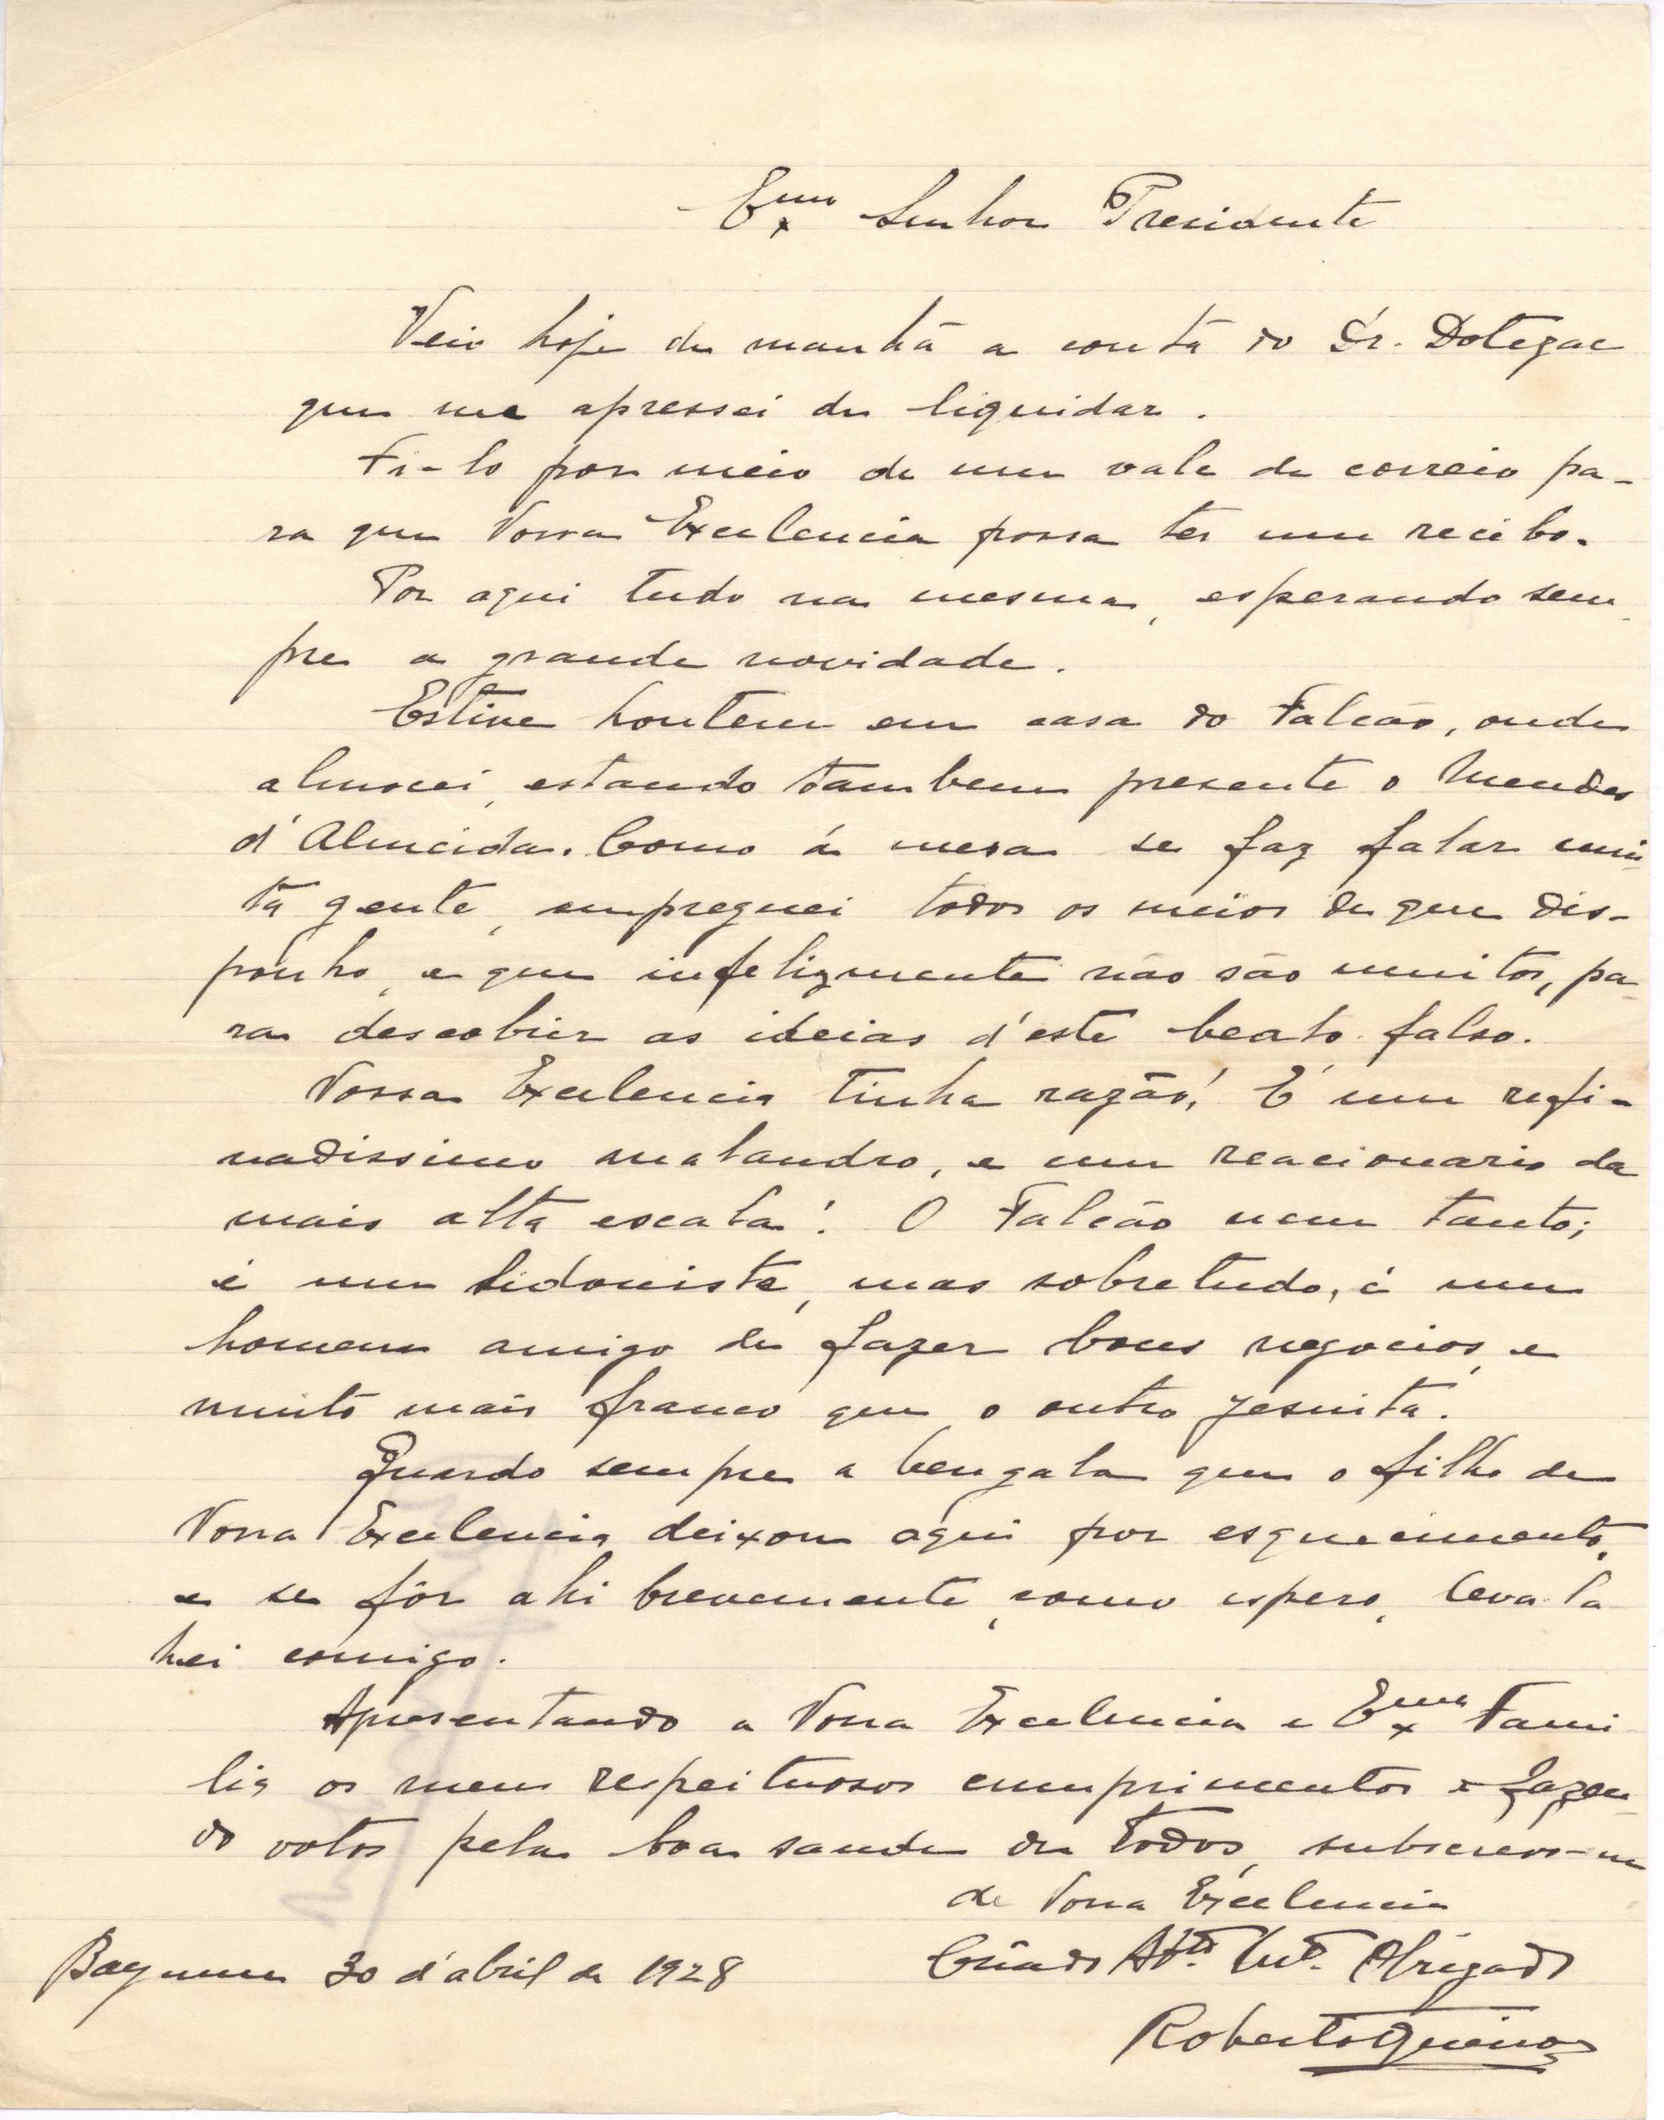 Exmo Senhor Presidente
Veio hoje de manhã a conta do Dr. Dotezac
que me apressei de liquidar.
Fi-lo por meio de um vale de correio pa-
ra que Vossa Excelencia possa ter um recibo.
Por aqui tudo na mesma, esperando sem-
pre a grande novidade.
Estive hontem em casa do Falcão, onde
almocei, estando tambem presente o Mendes
d'Almeida. Como á mesa se faz falar mui-
ta gente, empreguei todos os meios de que dis-
ponho, e que infelizmente não são muitos, pa-
ra descobrir as ideias d'este beato falso.
Vossa Excelencia tinha razão! É um refi-
nadissimo malandro, e um reacionario da
mais alta escala! O Falcão nem tanto;
é um sidonista, mas sobretudo, é um
homem amigo de fazer bons negocios, e
muito mais franco que o outro jesuita.
Guardo sempre a bengala que o filho de
Vossa Excelencia deixou aqui por esquecimento,
e se fôr ahi brevemente, como espero, leva-la
hei comigo.
Apresentando a Vossa Excelencia e Exma Fami
lia os meus respeituosos cumprimentos e fazen-
do votos pela boa saude de todos, subscrevo-me
de Vossa Excelencia
Criado Atto. Obrigado
Bayonne 30 d'abril de 1928
Roberto Queiroz